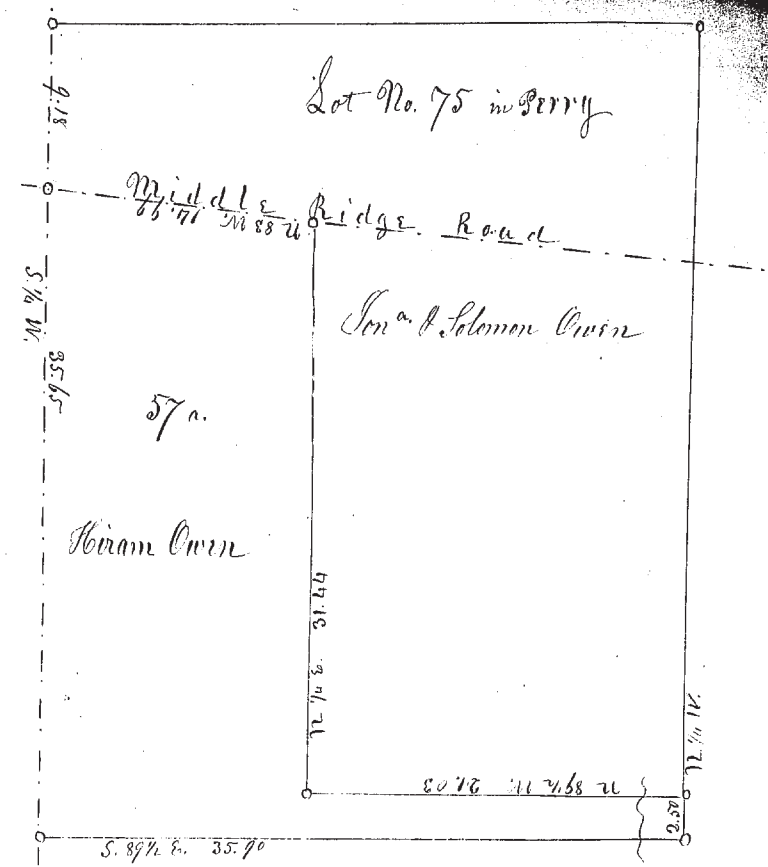 Lot No. 75 in Perry
9.18
Middle Ridge Road
N 83 W. 14.99
S. ¼ W. 35.65
Jona. & Solomon Owen
57 a.
Hiram Owen
31.44
N 89½ W. 21.03
2.50
S. 89½ E. 35.90